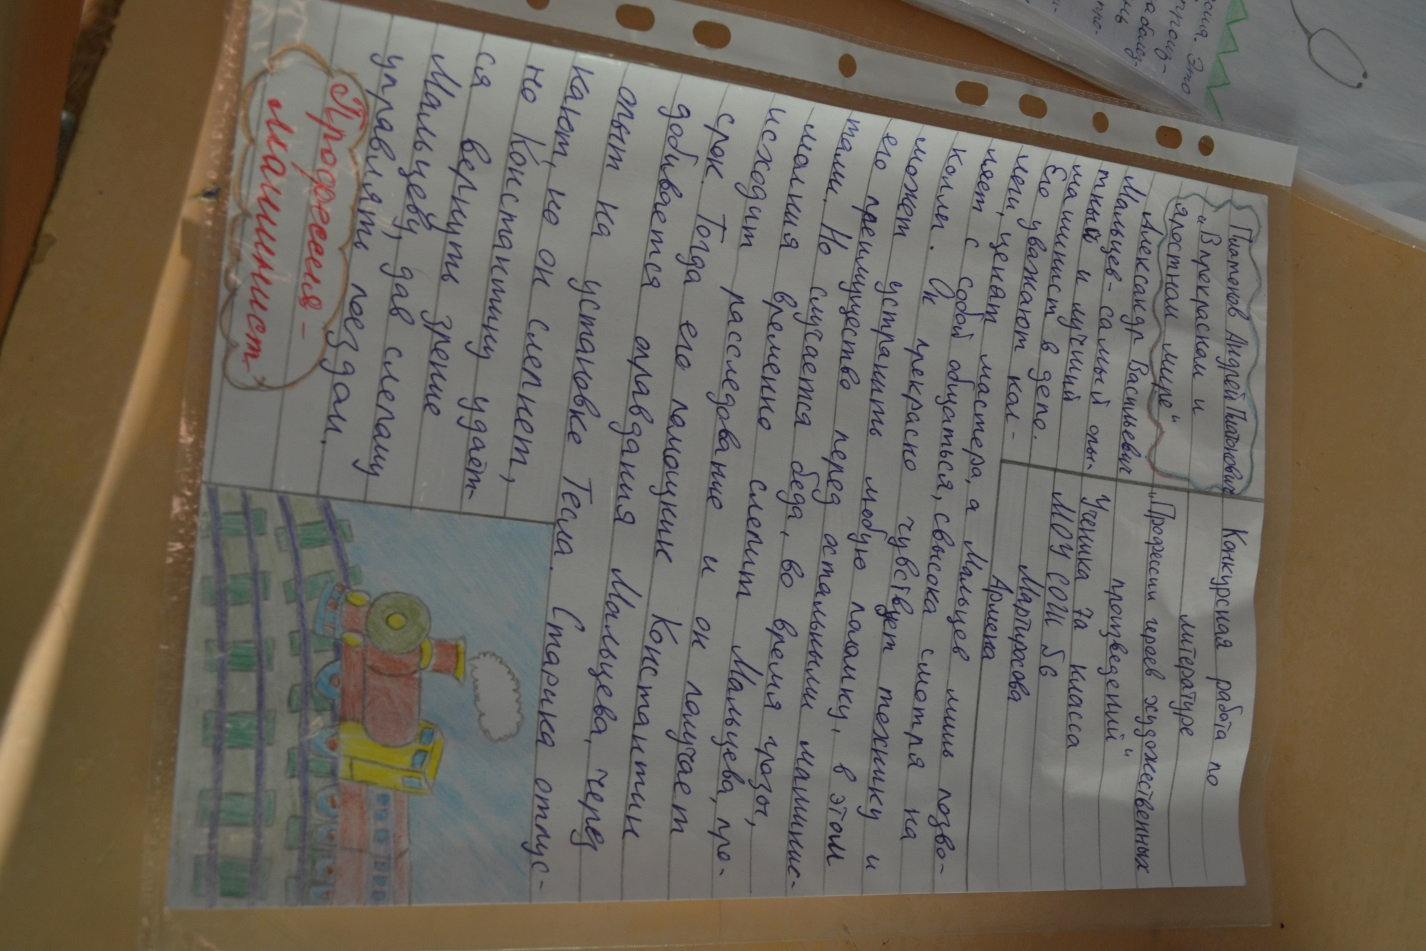 Платонов Андрей Платонович
"В прекрасном и
яростном мире"
Конкурсная работа по
литературе
„Профессии героев художественных
произведений"
Ученика 7а класса
МОУ СОШ 56
Мартиросова
Армена
Александр Васильевич
Мальцев - самый опы-
тный и лучший
машинист в депо.
Его уважают кол-
леги, ценят мастера, а Мальцев лишь позво-
ляет с собой общаться, свысока смотря на
коллег. Он прекрасно чувствует технику и
может устранить любую поломку, в этом
его преимущество перед остальными машинис-
тами. Но случается беда, во время грозы,
молния временно слепит Мальцева, про-
исходит расследование и он получает
срок. Тогда его помощник Константин
добивается оправдания Мальцева, через
опыт на установке Тесла. Старика отпус-
кают, но он слепнет,
но Константину удаёт-
ся вернуть зрение
Мальцеву, дав слепому
управлять поездом.
Профессия -
машинист